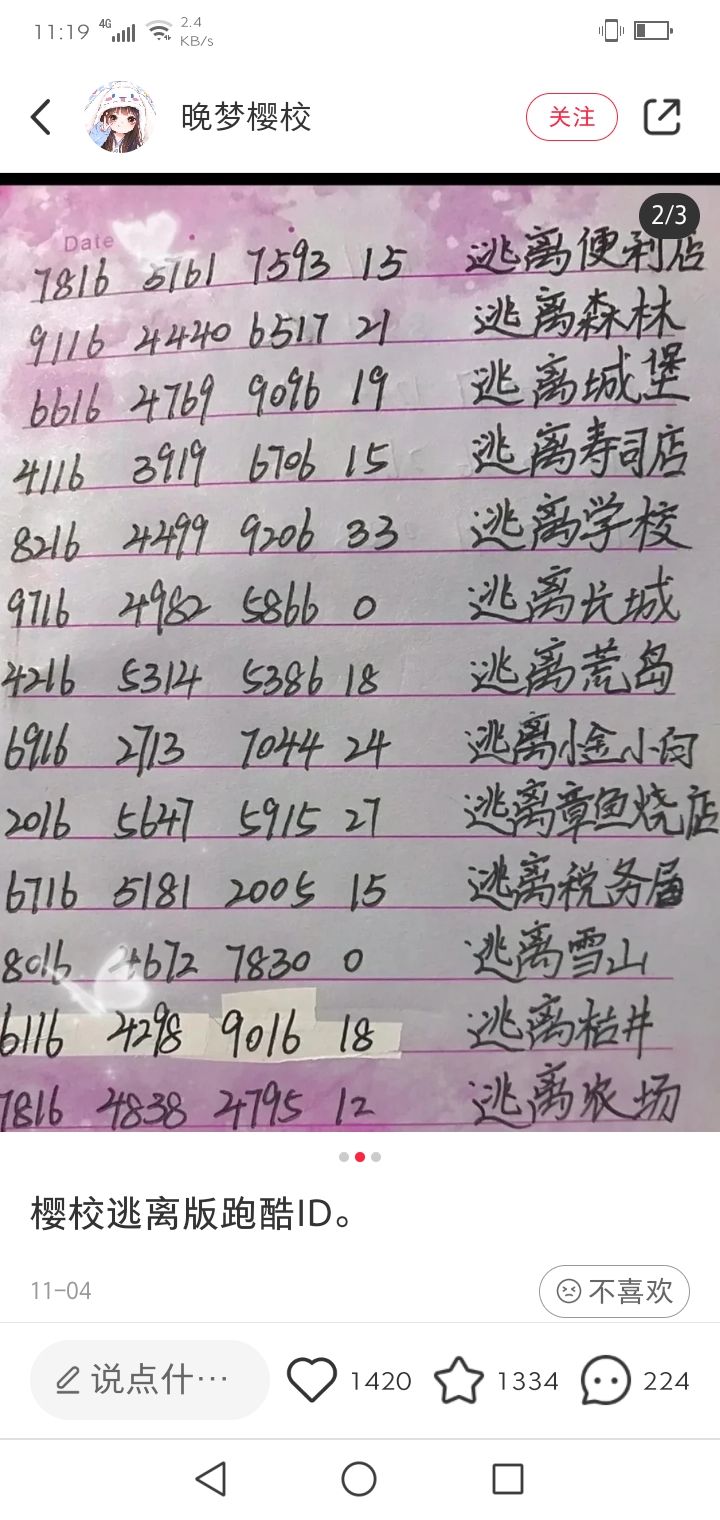 11:19 4G 2.4 KB/s
晚梦樱校 关注
2/3
Date
7816 5161 7593 15 逃离便利店
9116 4440 6517 21 逃离森林
6616 4769 9096 19 逃离城堡
4116 3919 6706 15 逃离寿司店
8216 4499 9206 33 逃离学校
9716 4982 5866 0 逃离长城
4216 5314 5386 18 逃离荒岛
6916 2713 7044 24 逃离小金小向
2016 5647 5915 27 逃离章鱼烧店
6716 5181 2005 15 逃离税务届
8016 4672 7830 0 逃离雪山
6116 4298 9016 18 逃离枯井
7816 4838 4795 12 逃离农场
樱校逃离版跑酷ID。
11-04 不喜欢
说点什… 1420 1334 224